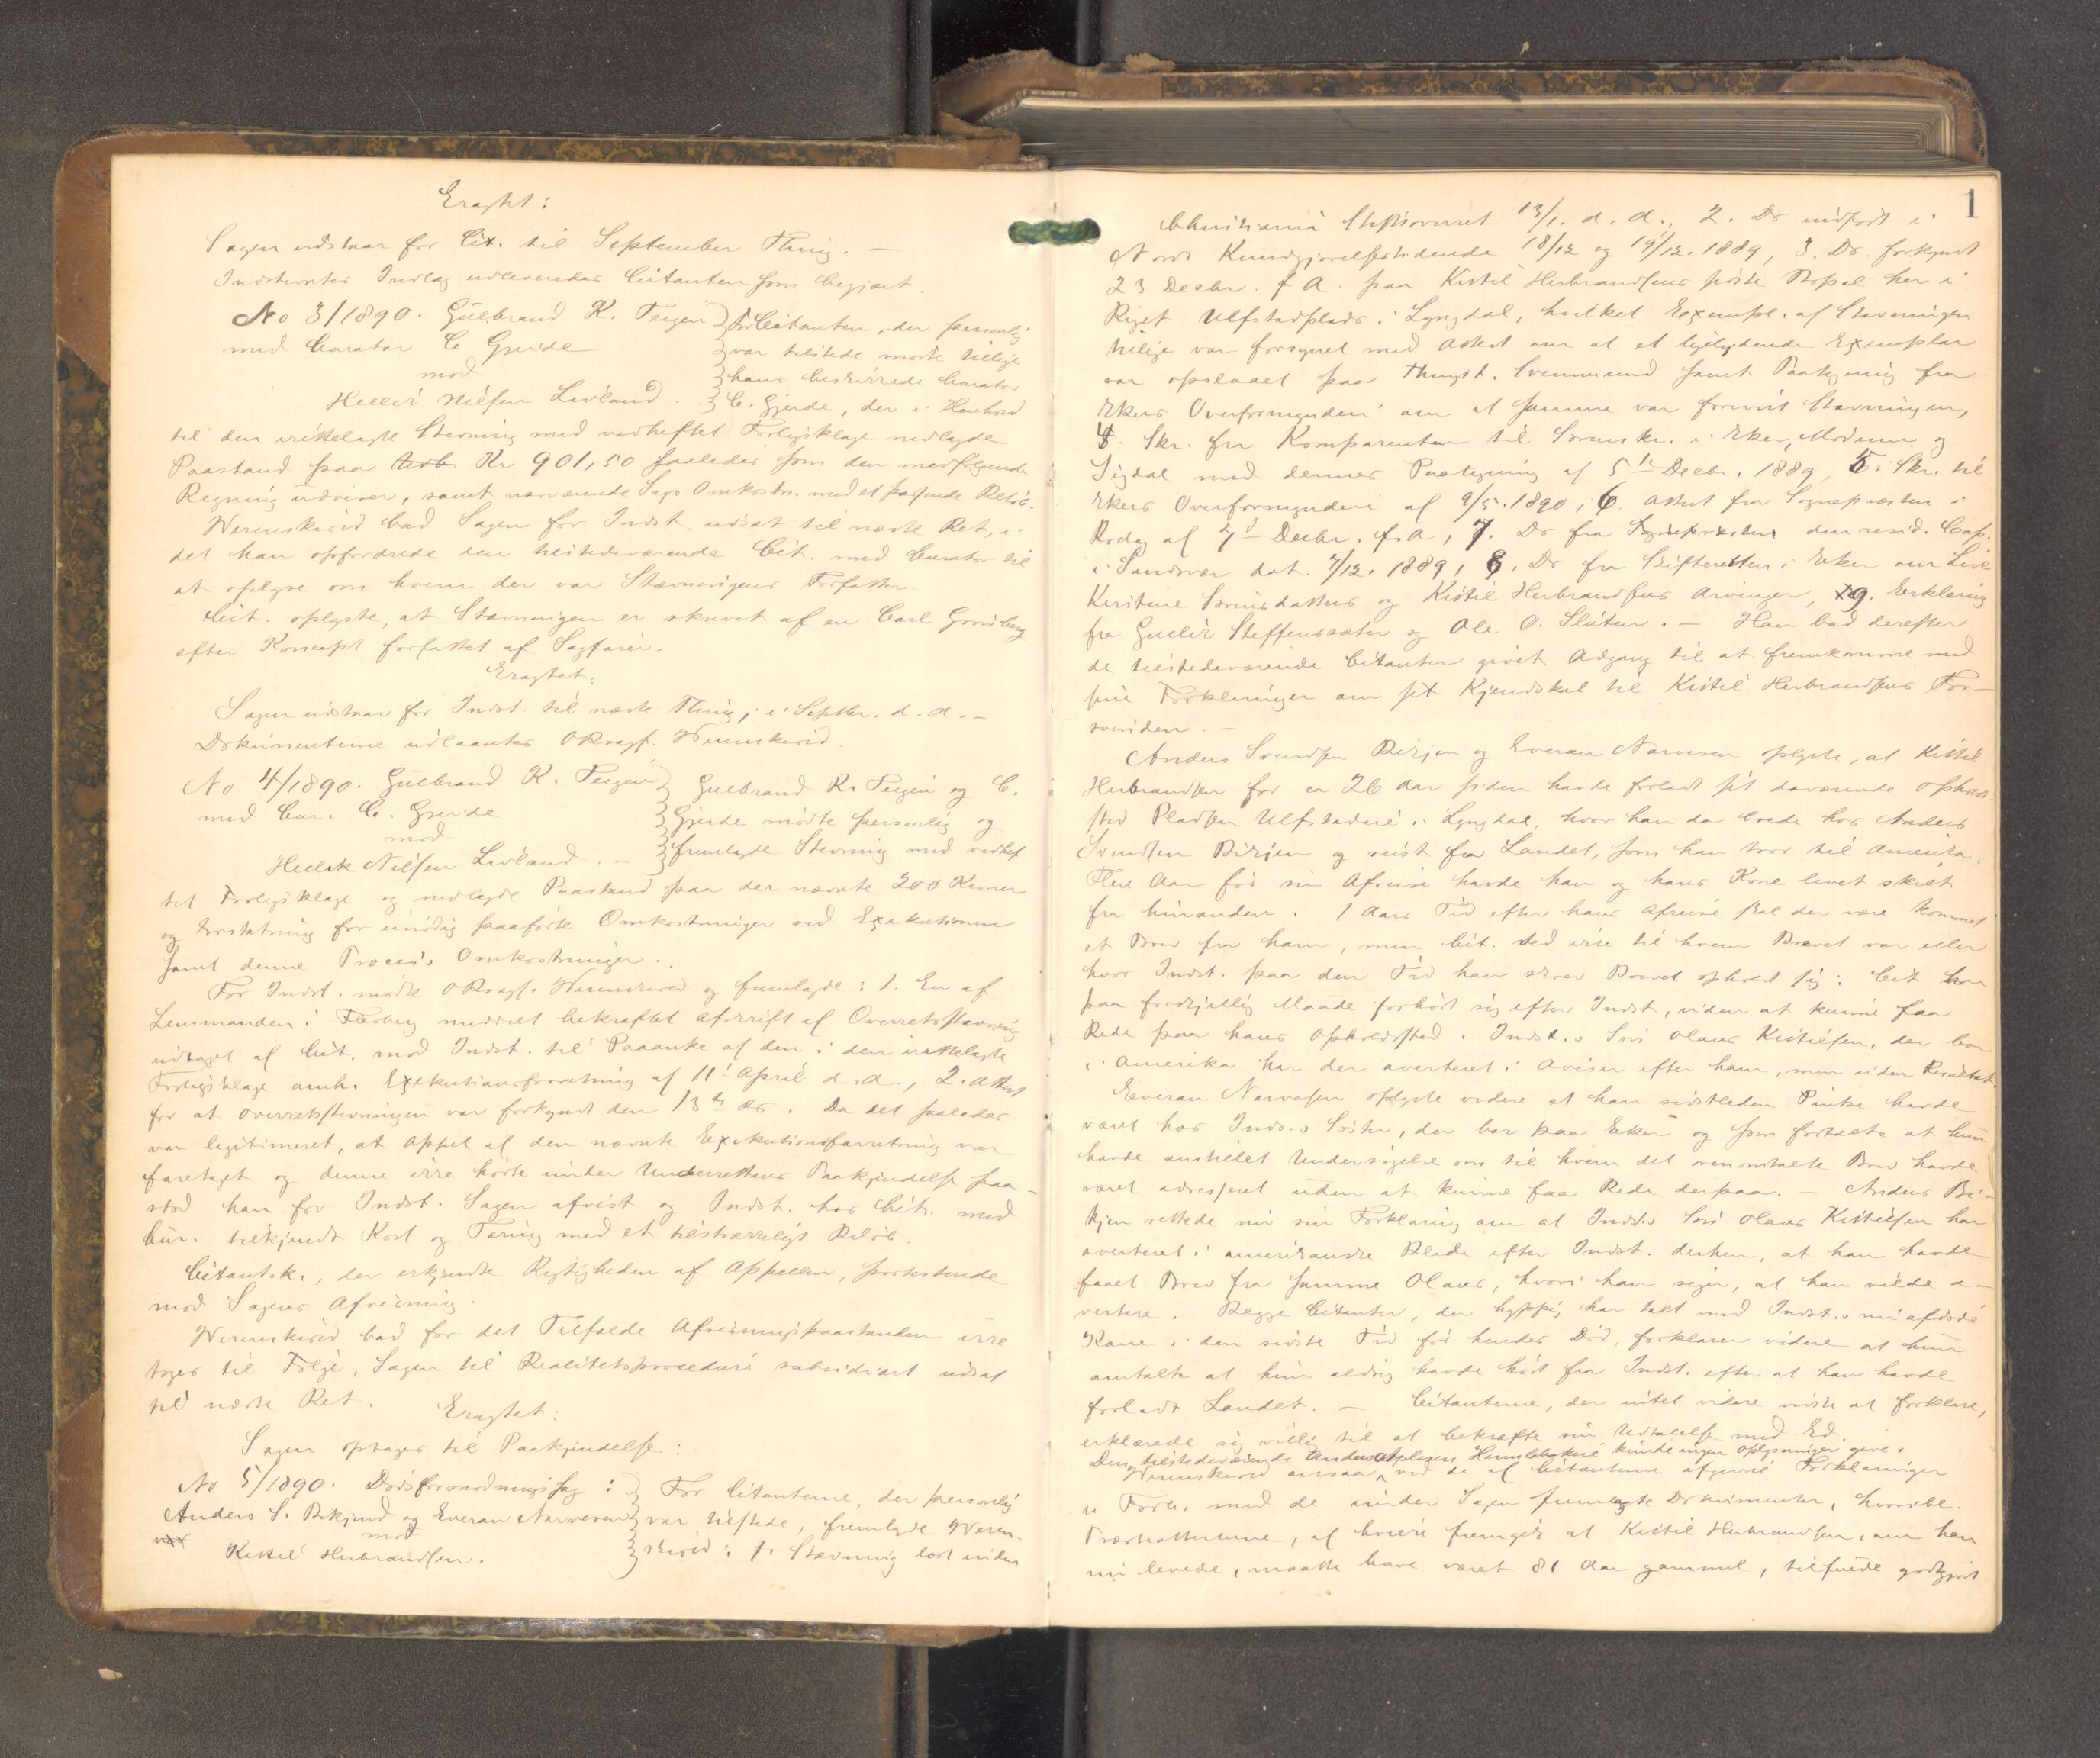 Eragtet:
Sagen udstaar for Cit. til September Thing. —
Indstevntes Indlæg udleveredes Citanten som begjært.
No 3/1890. Gulbrand K. Teigen
med Curator C. Gjeide
mod
Nielsen Livland.
For Citanten, der personlig
var tilstede mødte tillige
hans beskikkede Curator
C. Gjerde, der i Henhold
til den irettelagte Stevning med vedheftet Forligsklage nedlagde
Paastand paa Kr 901,50 saaledes som den medfølgende
Regning udviser, samt nærværende Sags Omkostn. med et passende Beløb.
Wermskiold bad Sagen for Indst. udsat til næste Ret, i-
det han opfordrede den tilstedeværende Cit. med Curator til
at oplyse om hvem der var Stævningens Forfatter.
Cit. oplyste, at Stævningen er skrevet af en Carl
efter Koncept forfattet af Sagfører.
Eragtet:
Sagen udstaar for Indst. til næste Thing, i Septbr. d. A. —
Dokumenterne udlaantes ORsagf. Wermskiold.
No 4/1890. Gulbrand K. Teigen
med Cur. C. Gjeide
mod
Nielsen Livland. —
Gulbrand K. Teigen og C.
Gjerde mødte personlig og
fremlagde Stevning med vedhef
tet Forligsklage og nedlagde Paastand paa der nævnte 200 Kroner
og Erstatning for unødig paaførte Omkostninger ved Exekutionen
samt denne Proces's Omkostninger.
For Indst. mødte ORsagf. Wermskiold og fremlagde: 1. En af
Lensmanden i Flesberg meddelt bekræftet Afskrift af Overretsstævning
udtaget af Cit. mod Indst. til Paaanke af den i den irettelagte
Forligsklage omh. Exekutionsforretning af 11 April d. A., 2. Attest
for at Overretsstevningen var forkyndt den 13de ds. Da det saaledes
var legitimeret, at Appel af den nævnte Exekutionsforretning var
foretaget og denne ikke hørte under Underrettens Paakjendelse paa-
stod han for Indst. Sagen afvist og Indst. hos Cit. med
Cur. tilkjendt Kost og Tæring med et tilstrækkeligt Beløb.
Citantsk., der erkjendte Rigtigheden af Appellen, protesterede
mod Sagens Afvisning.
Wermskiold bad for det Tilfælde Afvisningspaastanden ikke
toges til Følge, Sagen til Realitetsprocedure subsidiært udsat
til næste Ret.
Eragtet:
Sagen optages til Paakjendelse:
No 5/1890. Dødsformodningssag:
Anders S. Bekjend og Everan Narvesen
mod
Kittil Herbrandsen.
For Citanterne, der personlig
var tilstede, fremlagde Werm-
skiold: 1. Stævning lært inden
1
Christiania Stiftsoverret 13/1. d. A., 2. Do indført i
Norsk Kundgjørelsestidende 18/12 og 19/12. 1889, 3. Do. forkyndt
23 Decbr. f. A. paa Kittil Herbrandsens sidste Bopæl her i
Riget Ulfstadplads i Lyngdal, hvilket Exempl. af Stævningen
tillige var forsynet med Attest om at et ligelydende Exemplar
var opslaaet paa Thingst. Svennesund samt Paategning fra
Ekers Overformynderi om at samme var forevist Stævningen,
4. Skr. fra Komparenten til Sorenskr. i Eker, Modum og
Sigdal med dennes Paategning af 5te Decbr. 1889, 5. Skr. til
Ekers Overformynderi af 9/5. 1890, 6. Attest fra Sognepræsten i
Rodag af 7d Decbr. f. A., 7. Do fra den resid. Cap.
i Sandsvær dat. 7/12. 1889, 8. Do fra Skifteretten i Eker om Live
Kirstine Sørensdatters og Kittil Herbrandsens Arvinger, 9. Erklæring
fra Steffenssæter og Ole O. Sluten. — Han bad derefter
de tilstedeværende Citanter givet Adgang til at fremkomme med
sine Forklaringer om sit Kjendskab til Kittil Herbrandsens For-
svinden. —
Anders Svendsen Bekjen og Everan Narvesen oplyste, at Kittil
Herbrandsen for ca 26 Aar siden havde forladt sit daværende Opholds-
sted Pladsen Ulfstadeie i Lyngdal, hvor han da boede hos Anders
Svendsen Bekjen og reist fra Landet, som han tror til Amerika.
Flere Aar før sin Afreise havde han og hans Kone levet skilt
fra hinanden. 1 Aars Tid efter hans Afreise skal der være kommet
et Brev fra ham, men Cit. ved ikke til hvem Brevet var eller
hvor Indst. paa den Tid han skrev Brevet opholdt sig. Cit. har
paa forskjellig Maade forhørt sig efter Indst., uden at kunne faa
Rede paa hans Opholdssted. Indst.s Søn Olaus Kittilsen, der bor
i Amerika har der averteret i Aviser efter ham, men uden Resultat.
Everan Narvesen oplyste videre at han sidstleden Pintse havde
været hos Indst.s Søster, der bor paa Eker og som fortalte at hun
havde anstillet Undersøgelse om til hvem det ovenomtalte Brev havde
været adresseret uden at kunne faa Rede derpaa. — Anders Be-
kjen rettede nu sin Forklaring om at Indst.s Søn Olaus Kittilsen har
averteret i amerikanske Blade efter Indst. derhen, at han havde
faaet Brev fra samme Olaus, hvori han siger, at han vilde a-
vertere. Begge Citanter, der hyppig har talt med Indst.s nu afdøde
Kone i den sidste Tid før hendes Død, forklarer videre at hun
omtalte at hun aldrig havde hørt fra Indst. efter at han havde
forladt Landet. — Citanterne, der intet videre vidste at forklare,
erklærede sig villig til at bekræfte sin Udtalelse med Ed.
Den tilstedeværende Anders kunde ingen Oplysninger give.
Wermskiold ansaa ved de af Citanterne afgivne Forklaringer
i Forb. med de under Sagen fremlagte Dokumenter,
Præsteattesterne, af hvilke fremgik at Kittil Herbrandsen, om han
nu levede, maatte have været 81 Aar gammel, tilfulde godtgjort